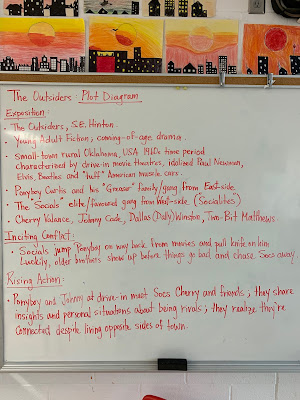 The Outsiders: Plot Diagram
Exposition:
• The Outsiders, S.E. Hinton
• Young Adult Fiction, coming-of-age drama
• Small-town rural Oklahoma, USA 1960s time period
characterised by drive-in movie theatres, idolized Paul Newman,
Elvis, Beatles and "tuff" American muscle cars.
• Ponyboy Curtis and his "Greaser" family/gang from East-side.
• The "Socials" elite/favoured gang from West-side ("Socialites")
• Cherry Valance, Johnny Cade, Dallas (Dally) Winston, Two-Bit Matthews.
Inciting Conflict:
• Socials jump Ponyboy on way back from movies and pull knife on him.
Luckily, older brothers show up before things go bad, and chase Socs away.
Rising Action:
• Ponyboy and Johnny at drive-in meet Socs Cherry and friends; they share
insights and personal situations about being rivals; they realize they're
connected despite living opposite sides of town.